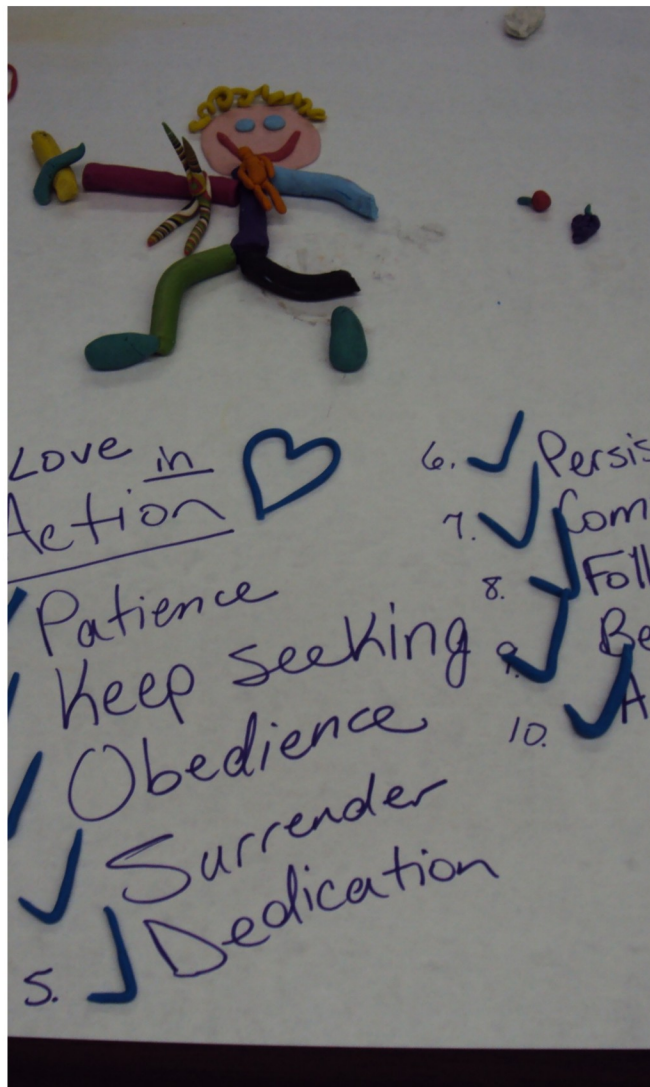 Love in
Action
Patience
Keep seeking
Obedience
Surrender
5. Dedication
6. Persis
7. Com
8. Foll
9. Be
10. A